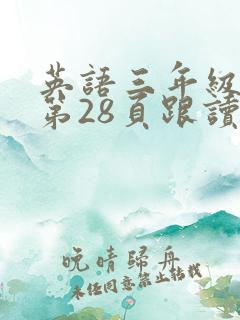 英語三年級
第28頁跟讀
晚晴歸舟
未經同意禁止轉載